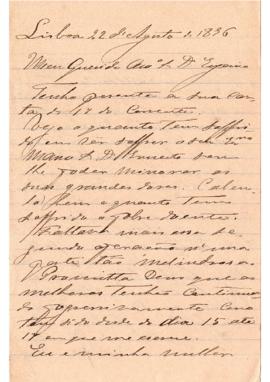 Lisboa 22 de Agosto de 1896
Meu Querido Am.º S. Dr. Eugenio
Tenho presente a sua car-
ta de 18 do Corrente.
Vejo o quanto tem soffri-
do em ver soffrer o seu
Mano S. Dr. Ernesto sem
lhe poder minorar as
suas grandes dores. Calcu-
lo bem o quanto tem
soffrido o pobre doente.
Faltava mais essa se-
gunda operação n'uma
parte tão melindrosa.
Permitta Deus que as
melhoras tenham continua-
do
tem sido desde do dia 15 até
18 em que me escreve.
Eu e minha mulher